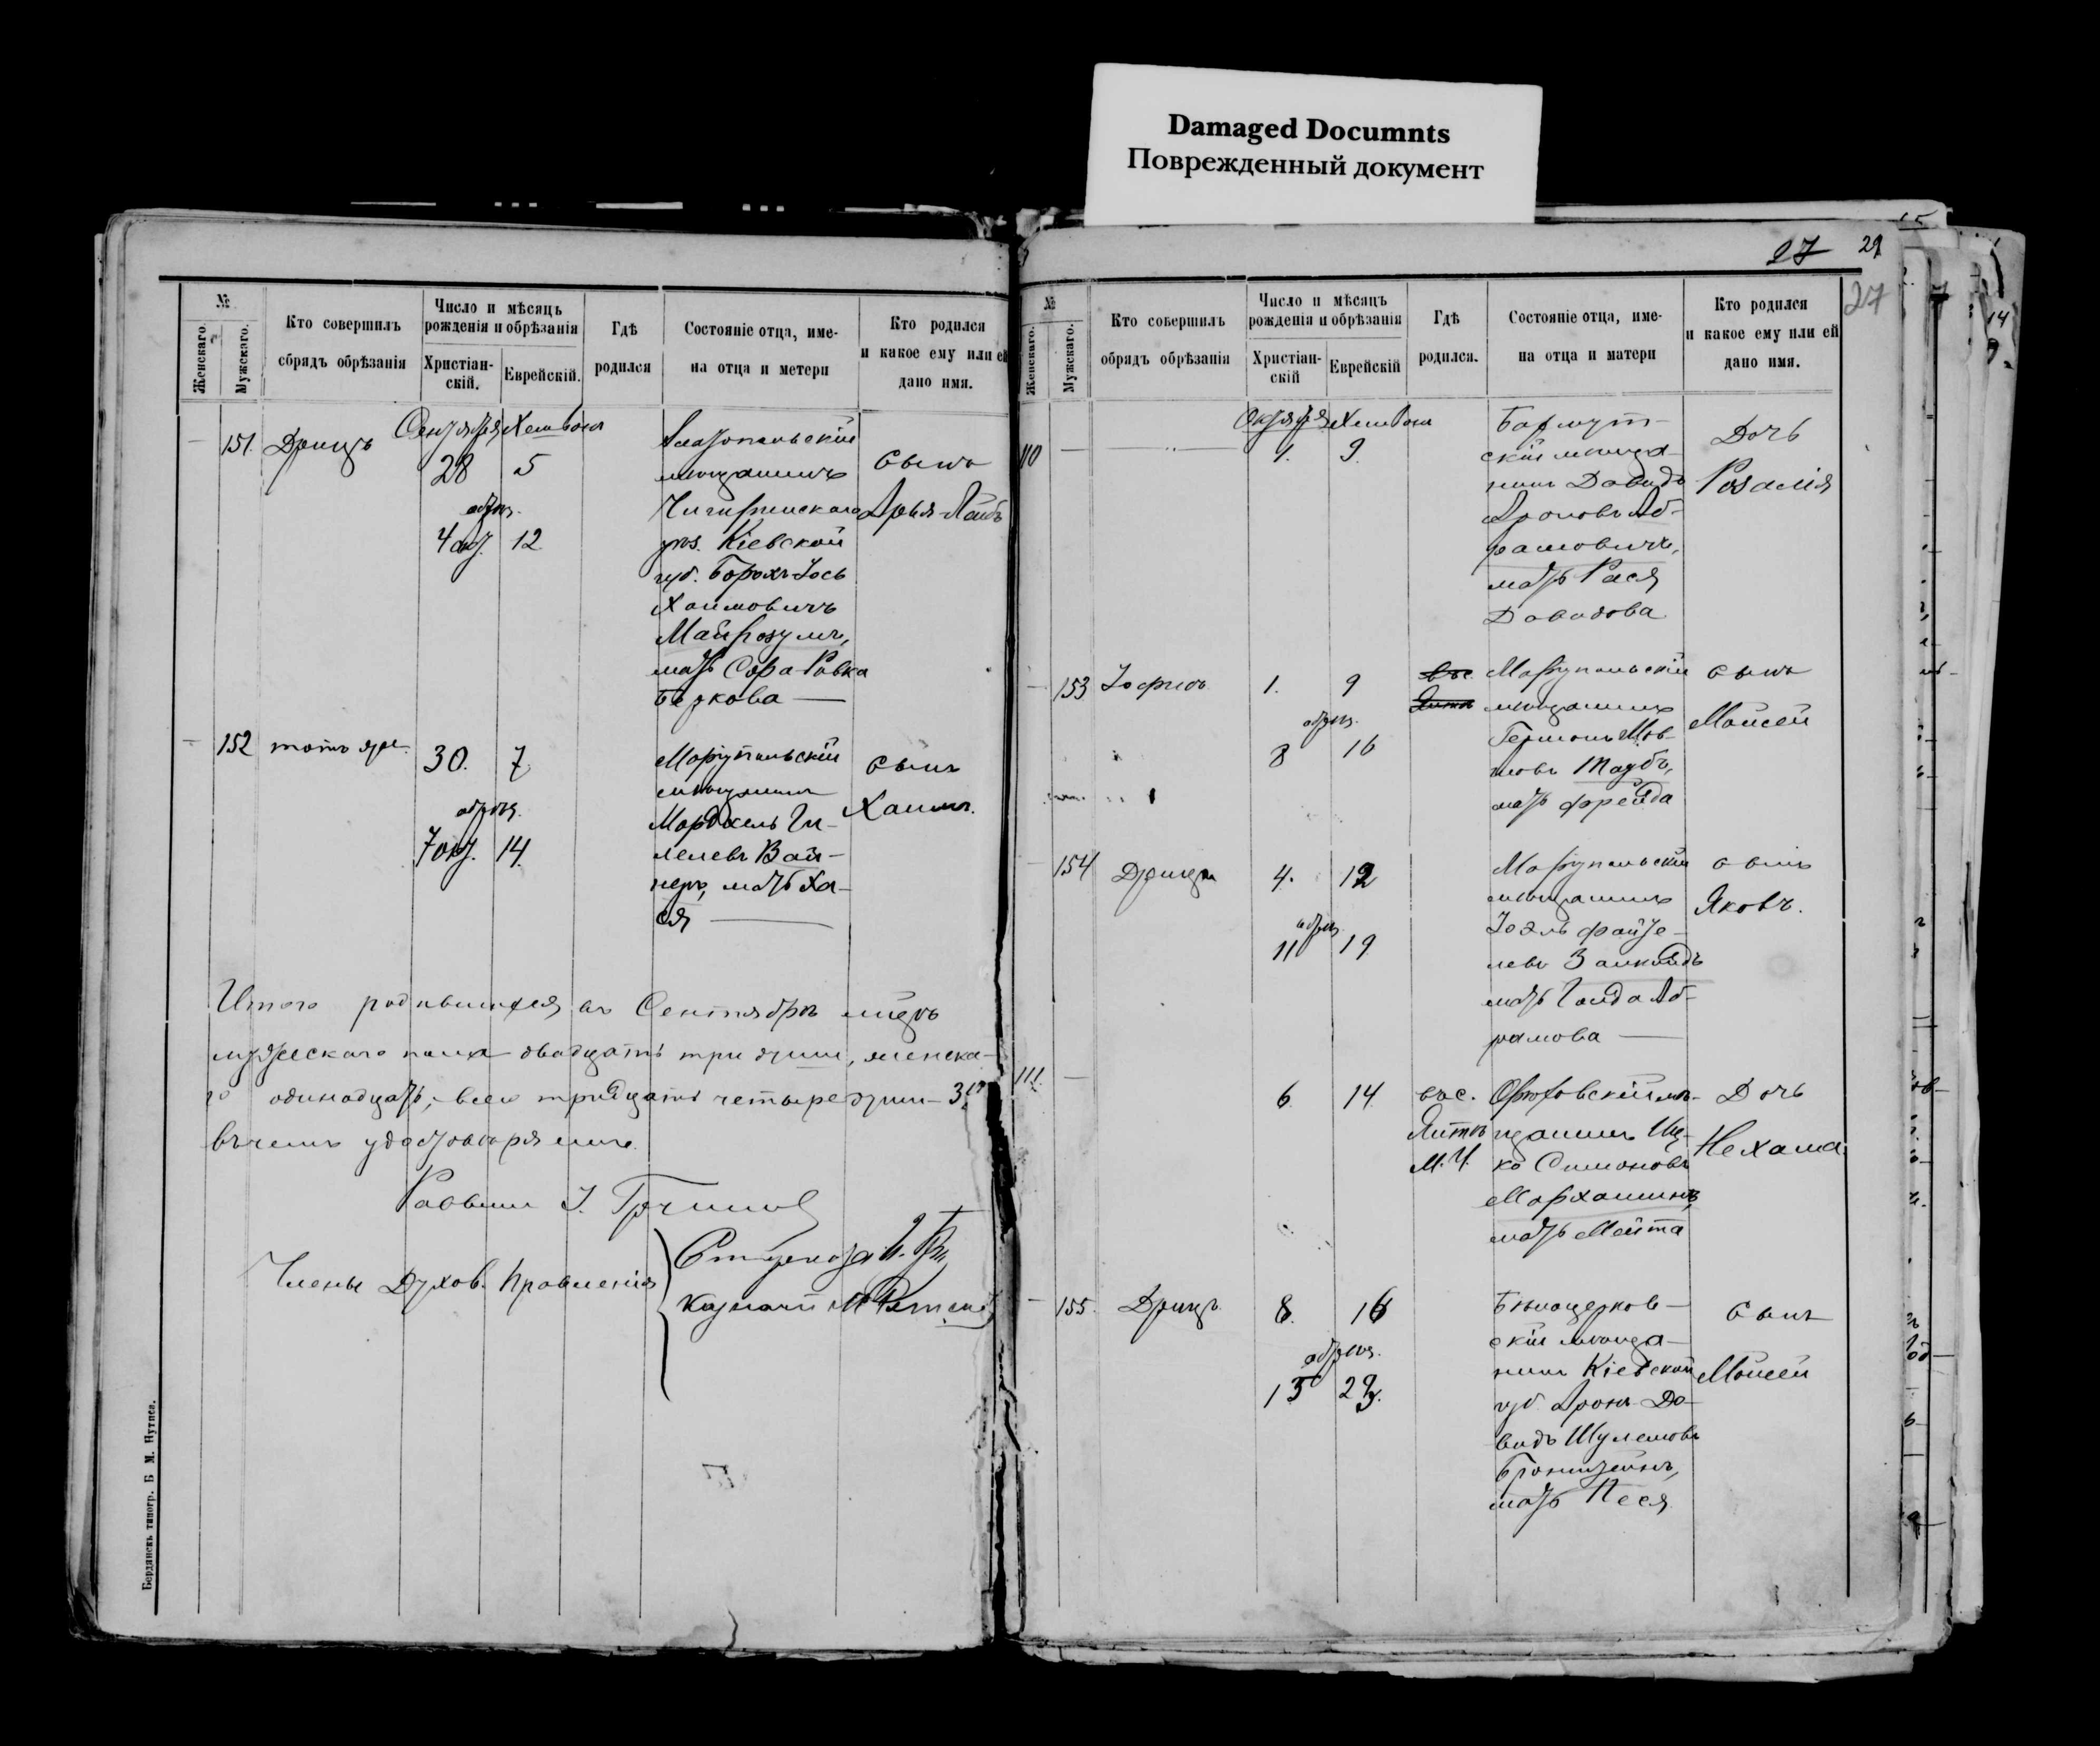 Damaged Documnts
Поврежденный документ
27 29
27
№
Женскаго.
Мужскаго.
Кто совершилъ
сбрядъ обрѣзанія
Число и мѣсяцъ
рожденія и обрѣзанія
Христіан-
скій.
Еврейскій.
Гдѣ
родился
Состояніе отца, име-
на отца и метери
Кто родился
и какое ему или ей
дано имя.
Сентября Хешвона
151. Дрицъ
28 5
обрѣз.
4 окт. 12
Златопольскій
мѣщанинъ
Чигиринскаго
уѣз. Кіевской
губ. Борохъ-Іось
Хаимовичъ
мать Сора-Ривка
Беркова —
Сынъ
Арья-Лейбъ
152 тотъ же.
30. 7.
обрѣз.
7 окт. 14.
Маріупольскій
мѣщанинъ
Мордхель Ги-
лелевъ Вай-
неръ, мать Ха-
ся —
Сынъ
Хаимъ.
Итого родившихся въ Сентябрѣ мѣсяцѣ
мужескаго пола двадцать три души, женска-
го одинадцать, всего тридцать четыре души
въ чемъ удостовѣряемъ.
Раввинъ
Члены Духов. Правленія
Казначей М
Бердянскъ типогр. Б М.
№
Женскаго.
Мужскаго.
Кто совершилъ
обрядъ обрѣзанія
Число и мѣсяцъ
рожденія и обрѣзанія
Христіан-
скій
Еврейскій
Гдѣ
родился.
Состояніе отца, име-
на отца и матери
Кто родился
и какое ему или ей
дано имя.
Октября Хешвона
110 —
1. 9.
Бахмут-
скій мѣща-
нинъ Давидъ
Ароновъ Аб-
рамовичъ,
мать Рася
Давидова
Дочь
Розалія
153 Іофивъ
1. 9
обрѣз.
8 16
Маріупольскій
мѣщанинъ
Германъ Мов-
шовъ Таубъ,
мать Фрейда
Сынъ
Моисей
154 Дрицъ
4. 12
обрѣз.
11 19
Маріупольскій
мѣщанинъ
Іоэль Файте-
левъ Залкиндъ
мать Голда Аб-
рамова —
Сынъ
Яковъ.
111. —
6 14
Орѣховскій мѣ-
щанинъ Иц-
ко Симоновъ
мать Мейта
Дочь
Нехама.
155. Дрицъ
8. 16
обрѣз.
15 23.
Бѣлоцерков-
скій мѣща-
нинъ Кіевской
губ. Аронъ-Да-
видъ Шулемовъ
Бронштейнъ,
мать Песя
Сынъ
Моисей